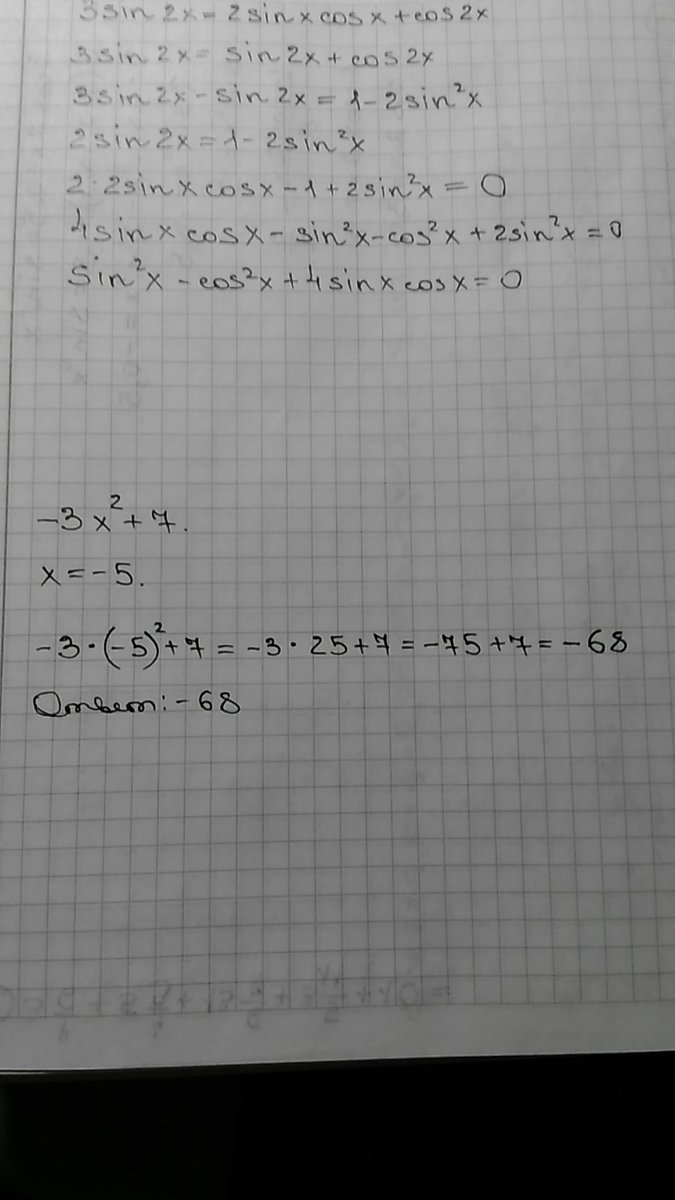 3sin 2x = 2sin x cos x + cos 2x
3sin 2x = sin 2x + cos 2x
3sin 2x - sin 2x = 1 - 2sin²x
2sin 2x = 1 - 2sin²x
2·2sin x cos x - 1 + 2sin²x = 0
4sin x cos x - sin²x - cos²x + 2sin²x = 0
sin²x - cos²x + 4sin x cos x = 0
-3x² + 7.
x = -5.
-3·(-5)² + 7 = -3·25 + 7 = -75 + 7 = -68
Ответ: -68